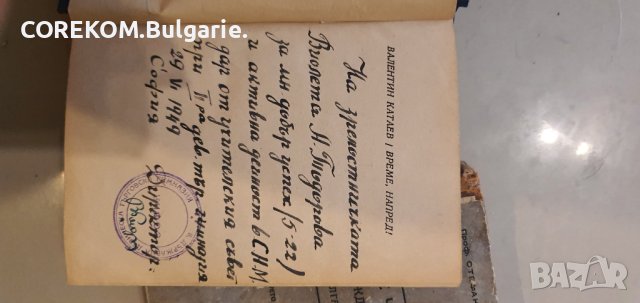 COREKOM.Bulgarie.
ВАЛЕНТИН КАТАЕВ | ВРЕМЕ, НАПРЕД!
На зрелостничката
Виолета Н. Тодорова
за мн добър успех /5-22/
и активна дейност в СНМ.
дар от учителския съвет
при девич. гимназия
29 VI 1949
София
Директор:
ПРОФ. ОТЕ
bazar